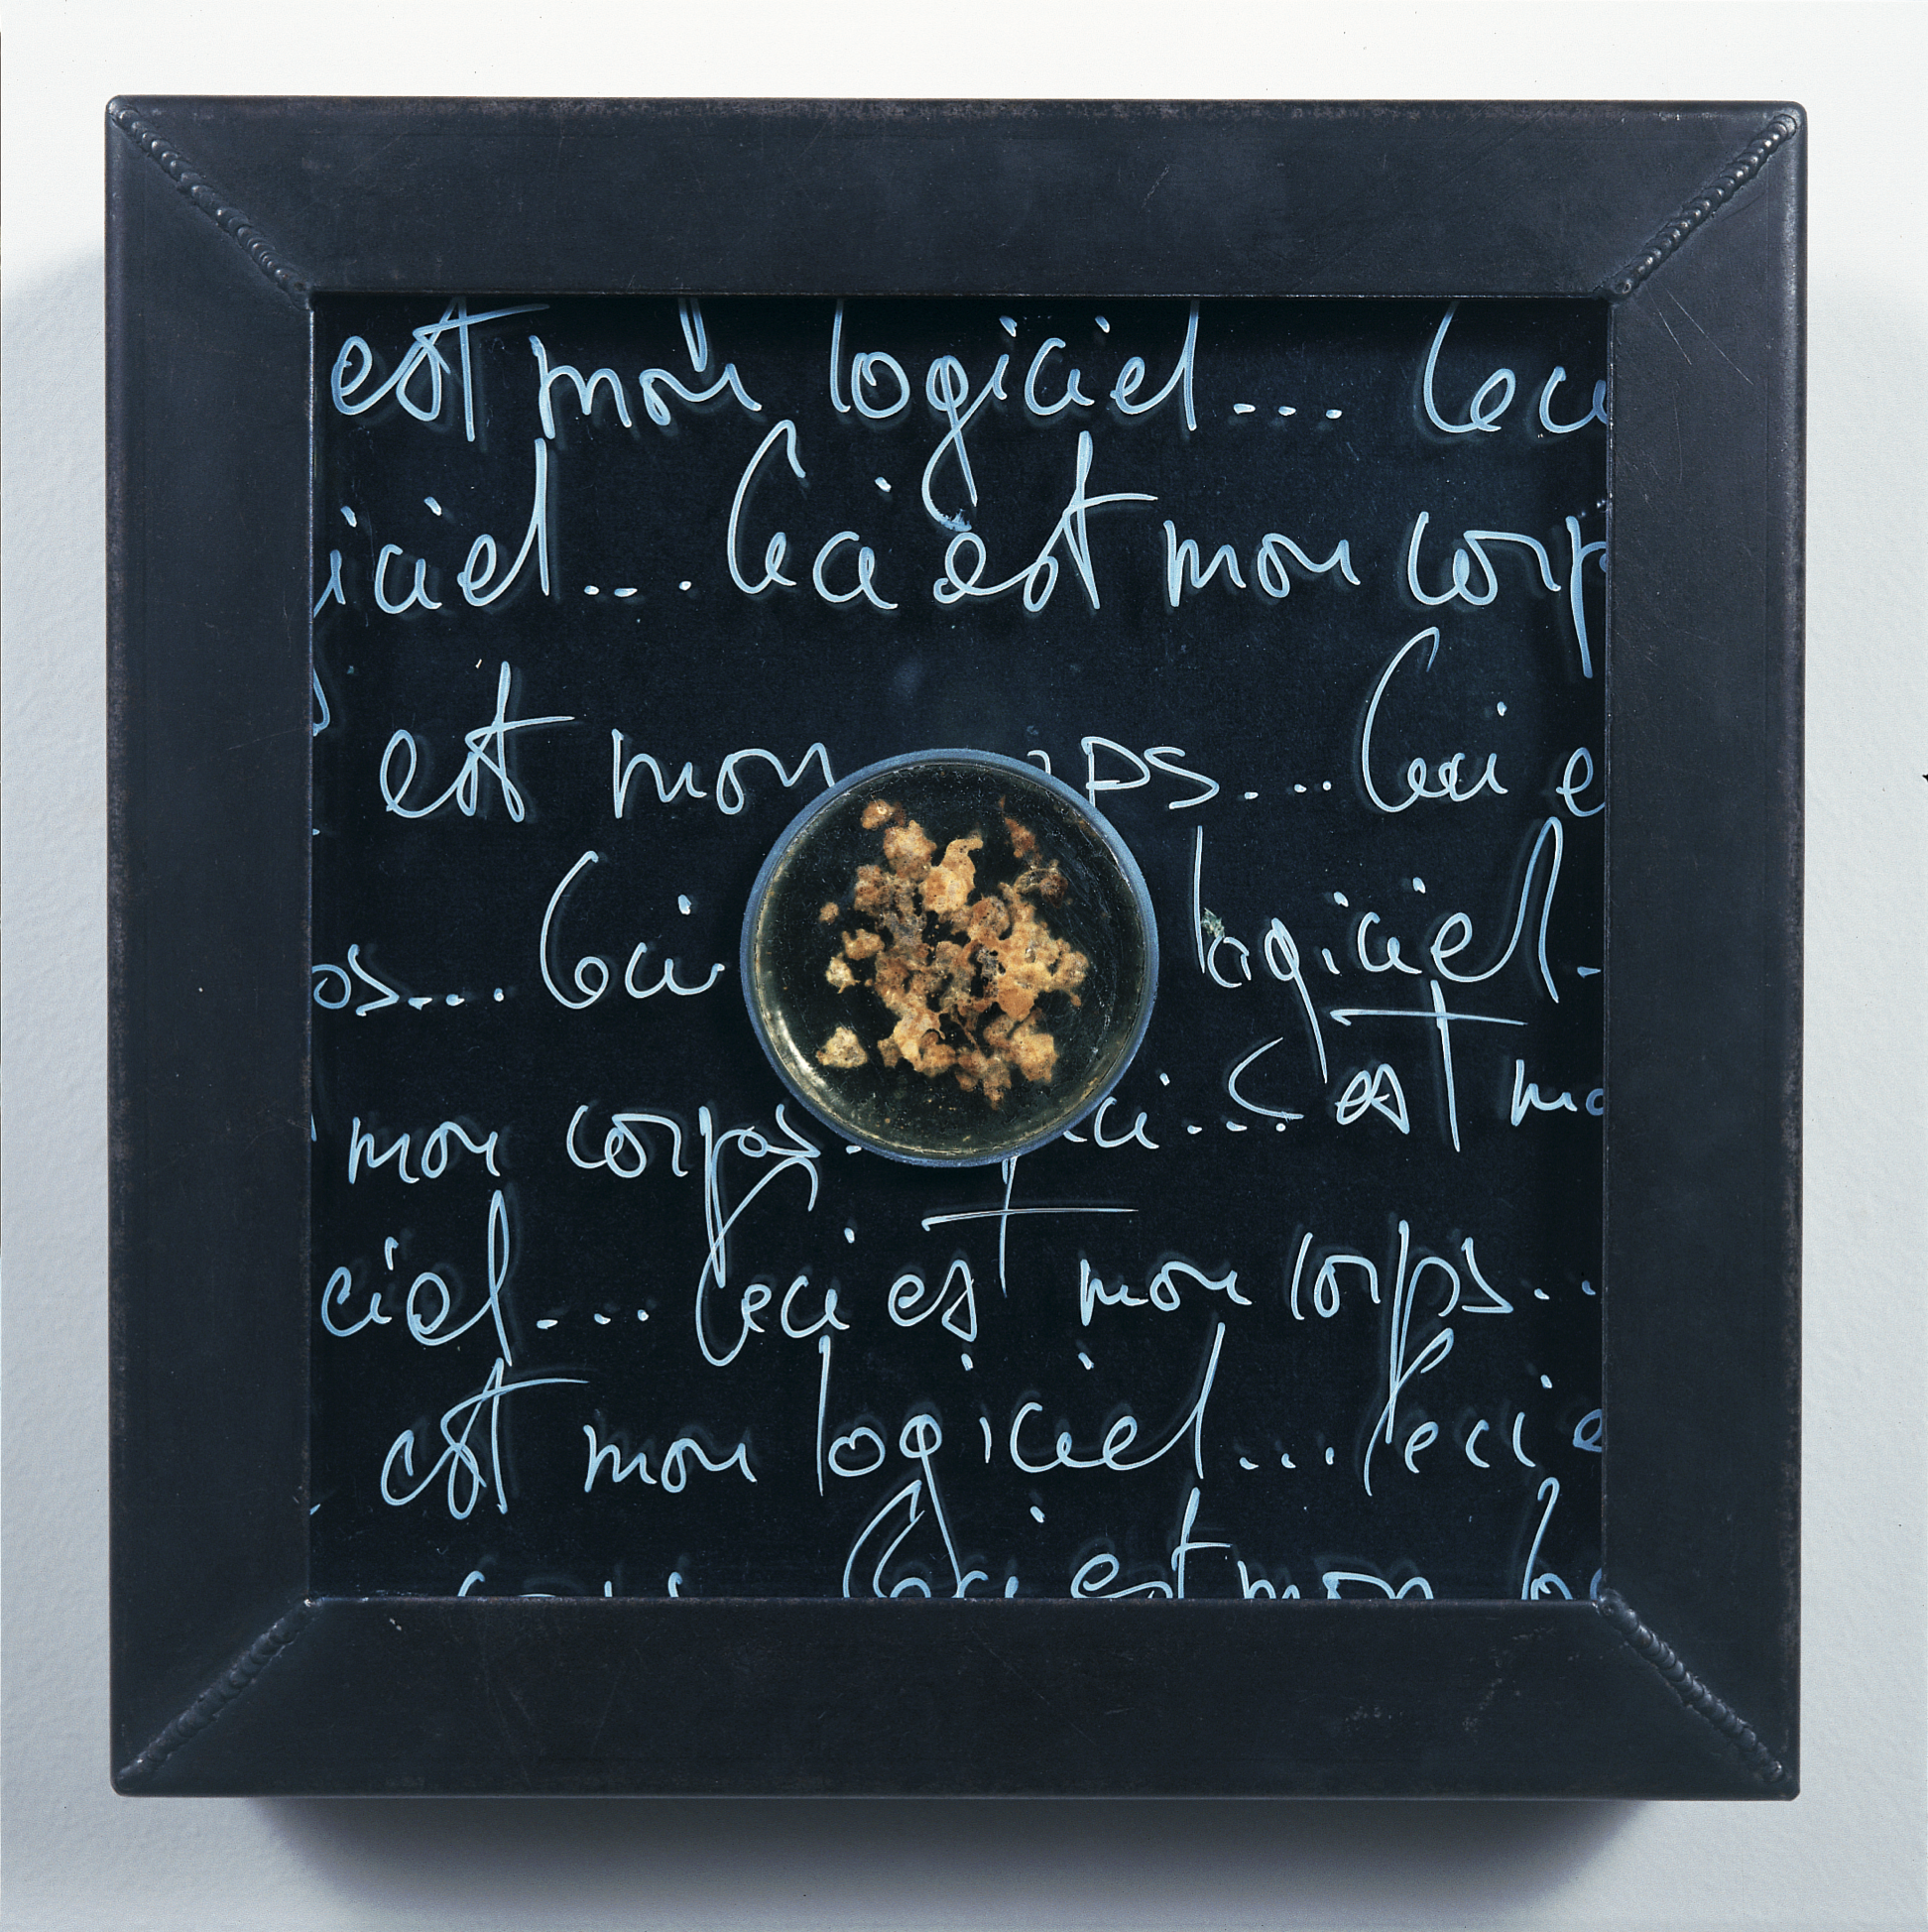 est mon logiciel... Ceci
iciel... Ceci est mon corp
est mon ps... Ceci e
ps... Ceci logiciel.
mon corps. ci... C est mo
ciel... Ceci est mon corps..
est mon logiciel... Ceci e
Ceci est mon lo